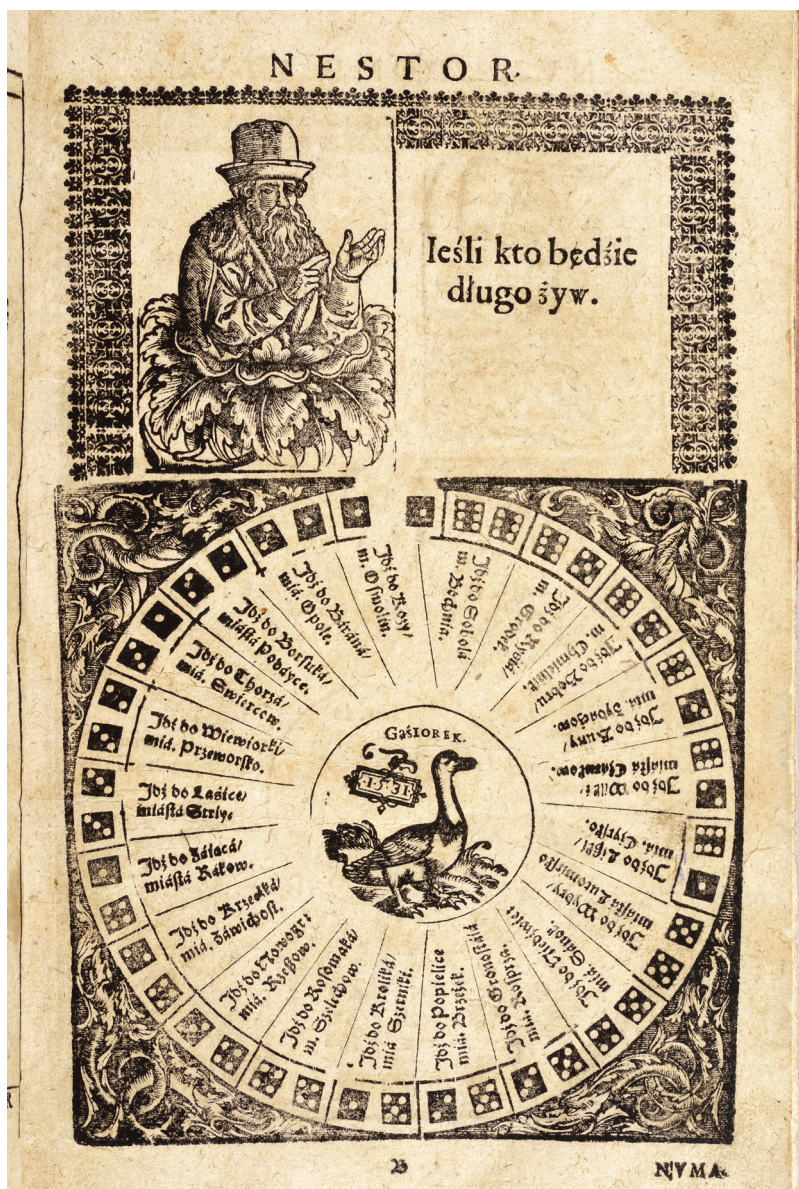 NESTOR.
Ieśli kto będźie
długo żyw.
Idź do Rozy/
m. Osmolin.
Idź do Sokołá
m. Bochnia.
Idź do Rysiá/
m. Grodek.
Idź do Bobru/
m. Chmielnik.
Idź do Kuny/
Idź do Wilká/
miástá Czarnkow.
Idź do Liszki/
miá. Czyrsko.
Idź do Wydry/
miástá Lutomirsko
Idź do Niedźwiedz
miá. Sánok.
Idź do Gronostáiá
Idź do Popielice
miá. Brzeżek.
Idź do Kroliká/
miá Szernski.
Idź do Rosomaká/
m. Szelechow.
miá. Rzeßow.
Idź do Krzeczká/
miá. Záwichost.
Idź do Záiącá/
miástá Rakow.
Idź do Láśice/
miástá Striy.
Idź do Wiewiorki/
miá. Przeworsko.
Idź do Thorzá/
miá. Swiercow.
Idź do Borsuká/
miástá Podáyce.
Idź do Báráná/
miá. Opole.
GąśIOREK.
1531
NVMA.